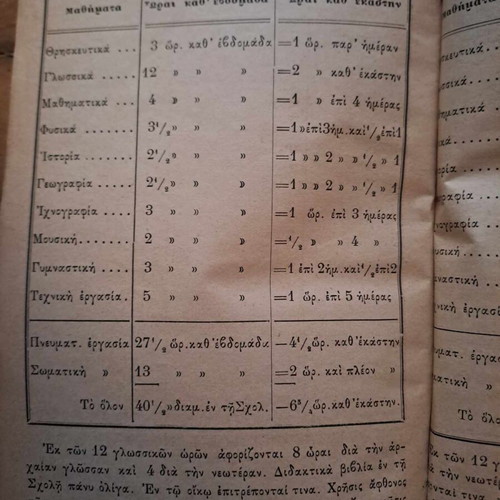 Μαθήματα Ὧραι καθ' ἑβδομάδα Ὧραι καθ' ἑκάστην
Θρησκευτικά 3 ὧρ. καθ' ἑβδομάδα =1 ὧρ. παρ' ἡμέραν
Γλωσσικά ..... 12 » » » =2 » καθ' ἑκάστην
Μαθηματικά .. 4 » » » =1 » ἐπὶ 4 ἡμέρας
Φυσικά ....... 3 1/2 » » » =1 » ἐπὶ 3 ἡμ. καὶ 1/2 ἐπὶ 1
Ἱστορία ...... 2 1/2 » » » =1 » » 2 » » 1/2 » 1
Γεωγραφία ... 2 1/2 » » » =1 » » 2 » » 1/2 » 1
Ἰχνογραφία .... 3 » » » =1 ὧρ. ἐπὶ 3 ἡμέρας
Μουσική ....... 2 » » » =1/2 » » 4 »
Γυμναστική .. 3 » » » =1 ἐπὶ 2 ἡμ. καὶ 1/2 ἐπὶ 2
Τεχνική ἐργασία. 5 » » » =1 ὧρ. ἐπὶ 5 ἡμέρας
Πνευματ. ἐργασία 27 1/2 ὧρ. καθ' ἑβδομάδα —4 1/2 ὧρ. καθ' ἑκάστην
Σωματική » 13 » » » =2 ὧρ. καὶ πλέον »
Τὸ ὅλον 40 1/2 διαμ. ἐν τῇ Σχολ. —6 3/4 ὧρ. καθ' ἑκάστην.
Ἐκ τῶν 12 γλωσσικῶν ὡρῶν ἀφορίζονται 8 ὧραι διὰ τὴν ἀρ-
χαίαν γλῶσσαν καὶ 4 διὰ τὴν νεωτέραν. Διδακτικὰ βιβλία ἐν τῇ
Σχολῇ πάνυ ὀλίγα. Ἐν τῷ οἴκῳ ἐπιτρέπονταί τινα. Χρῆσις ἄφθονος